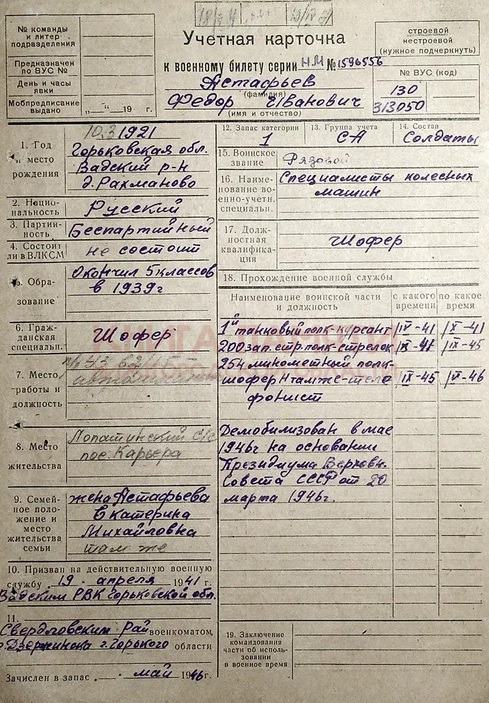 № команды
и литер
подразделения
Предназначен
по ВУС №
День и часы
явки
Мобпредписание
выдано „ “ 19 г.
Учетная карточка
к военному билету серии НМ № 1596556
Астафьев
(фамилия)
Федор Иванович
(имя и отчество)
строевой
нестроевой
(нужное подчеркнуть)
№ ВУС (код)
130
313050
1. Год
и место
рождения
10.3 1921
Горьковская обл.
Вадский р-н
д. Рахманово
2. Нацио-
нальность
Русский
3. Партий-
ность
Беспартийный
4. Состоит
ли в ВЛКСМ
не состоит
5. Образование
Окончил 5 классов
в 1939г
6. Граж-
данская
специальн.
Шофер
7. Место
работы и
должность
8. Место
жительства
Лопатинский с/с
пос. Карьера
9. Семейное
положение и
место
жительства
семьи
жена Астафьева
Екатерина
Михайловна
там же
10. Призван на действительную военную
службу 19 апреля 1941 г.
Вадским РВК Горьковской обл.
11.
Свердловским Рай военкоматом,
Дзержинска г. Горького области
Зачислен в запас „ “ май 1946 г.
12. Запас категории
1
13. Группа учета
СА
14. Состав
Солдаты
15. Воинское
звание
Рядовой
16. Наиме-
нование воен-
но-учетн.
специальн.
Специалисты колесных
машин
17. Долж-
ностная
квалификация
Шофер
18. Прохождение военной службы
Наименование воинской части
и должность
с какого
времени
по какое
время
1й танковый полк-курсант IV-41 X-41
200 зап. стр. полк-стрелок X-41 IX-45
254 минометный полк-
шофер IX-45 V-46
Демобилизован в мае
1946г на основании
Президиума Верховн.
Совета СССР от 20
марта 1946г.
19. Заключение
командования
части об исполь-
зовании
в военное время